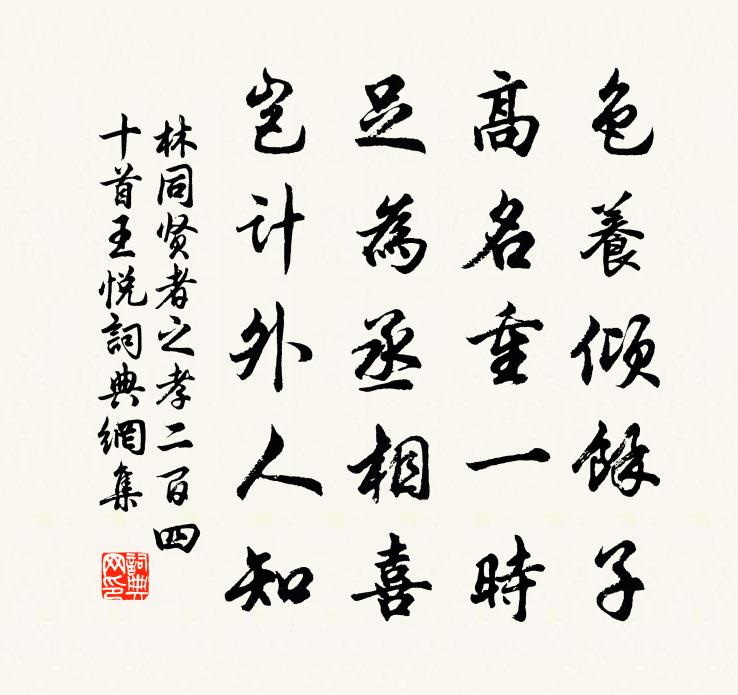 色養傾餘子
高名重一時
足為丞相喜
豈计外人知
林同贤者之孝二百四
十首王悅詞典網集
詞典
网印